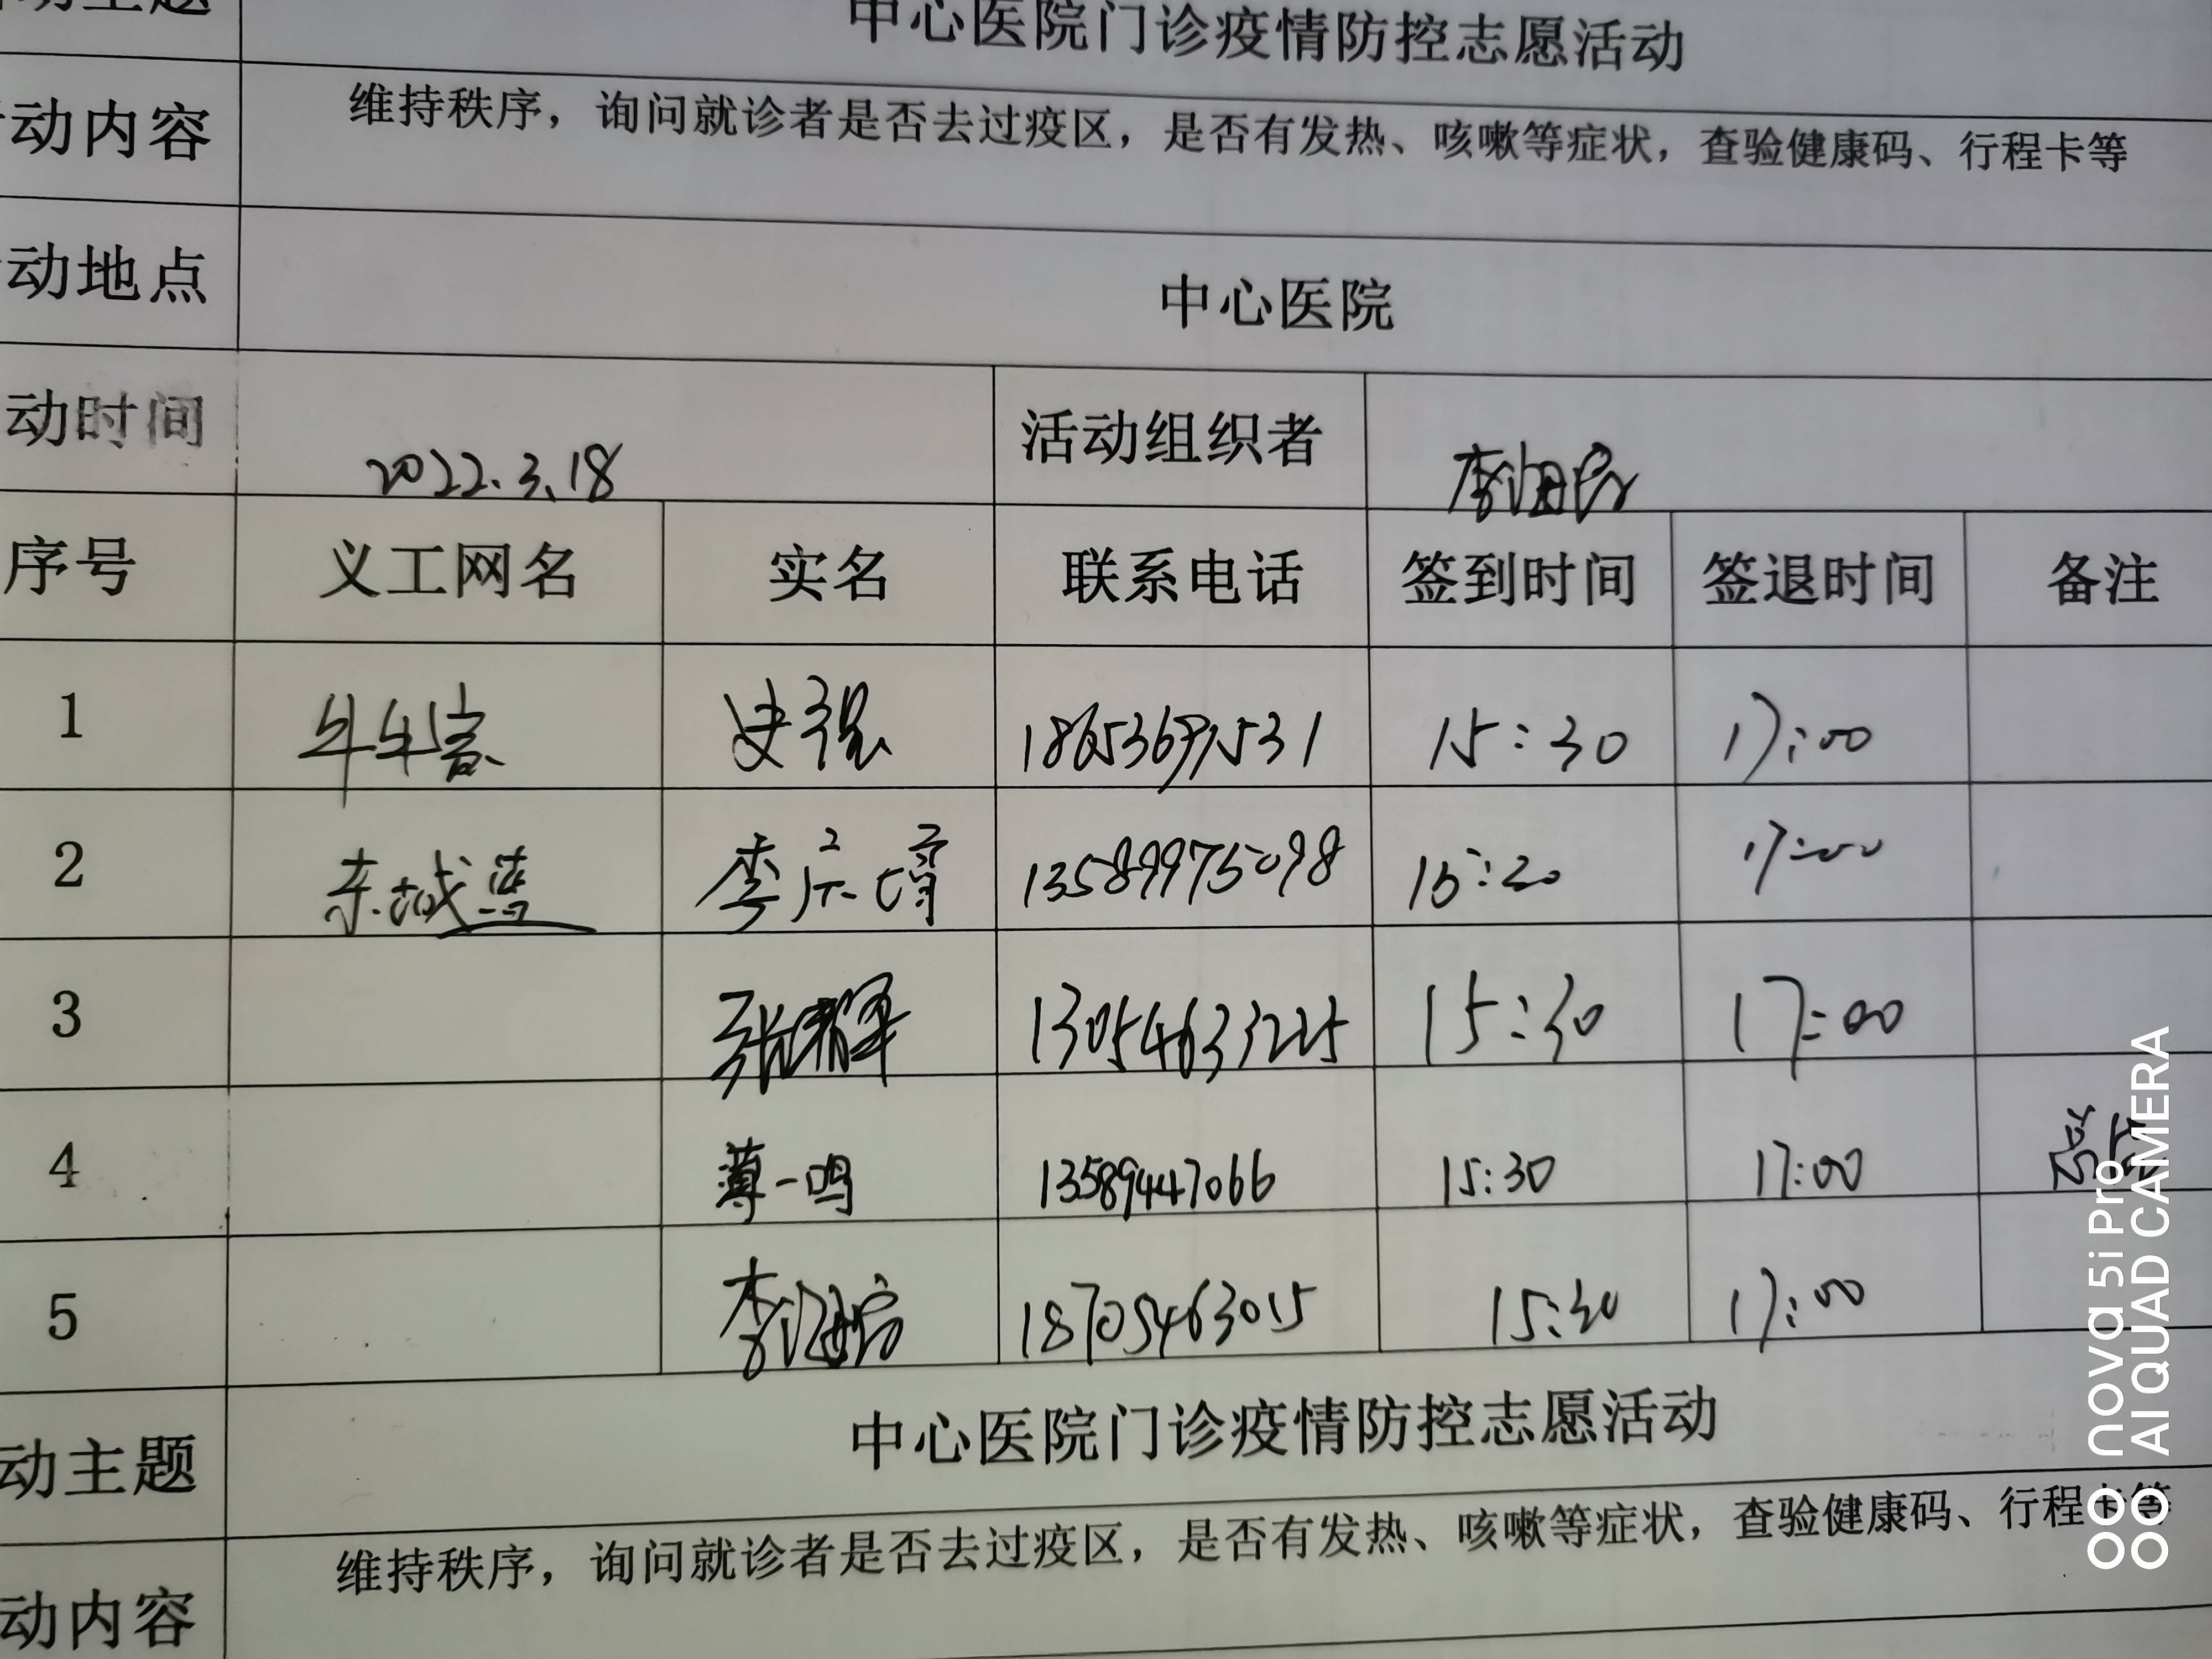 动主题 中心医院门诊疫情防控志愿活动
动内容 维持秩序，询问就诊者是否去过疫区，是否有发热、咳嗽等症状，查验健康码、行程卡等
动地点 中心医院
动时间 2022.3.18 活动组织者
序号 义工网名 实名 联系电话 签到时间 签退时间 备注
1 史强 15:30 17:00
2 李宗 13589975098 17:00
3 张 13054633225 15:30 17:00
4 薄一鸣 13589447066 15:30 17:00
5 李 18705463015 15:30 17:00
动主题 中心医院门诊疫情防控志愿活动
动内容 维持秩序，询问就诊者是否去过疫区，是否有发热、咳嗽等症状，查验健康码、行程卡等
nova 5i Pro
AI QUAD CAMERA